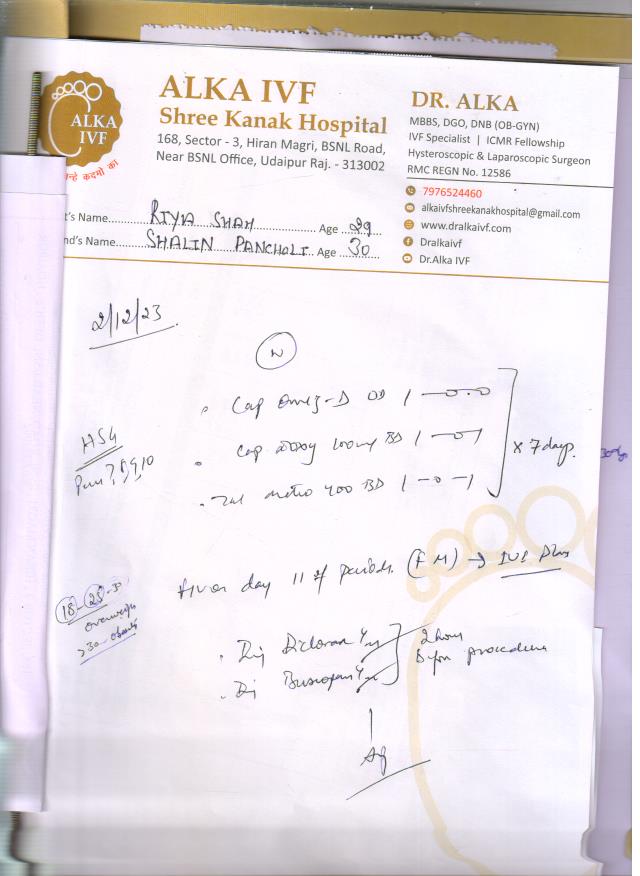 ALKA IVF
Shree Kanak Hospital
168, Sector - 3, Hiran Magri, BSNL Road,
Near BSNL Office, Udaipur Raj. - 313002
DR. ALKA
MBBS, DGO, DNB (OB-GYN)
IVF Specialist | ICMR Fellowship
Hysteroscopic & Laparoscopic Surgeon
RMC REGN No. 12586
7976524460
alkaivfshreekanakhospital@gmail.com
www.dralkaivf.com
Dralkaivf
Dr.Alka IVF
ALKA
IVF
न्हे कदमों का
t's Name RIYA SHAH Age 29
nd's Name SHALIN PANCHOLI Age 30
2/12/23
N
Cap Omez-D OD 1-0-0
HSG
Cap Doxy 100mg BD 1-0-1
x 7 days.
Tab metro 400 BD 1-0-1
day 11 of periods. (F M) →
18-25-30
overweight
>30-obesity
Inj Dicloran
2 hour
before procedure
Inj Buscopan